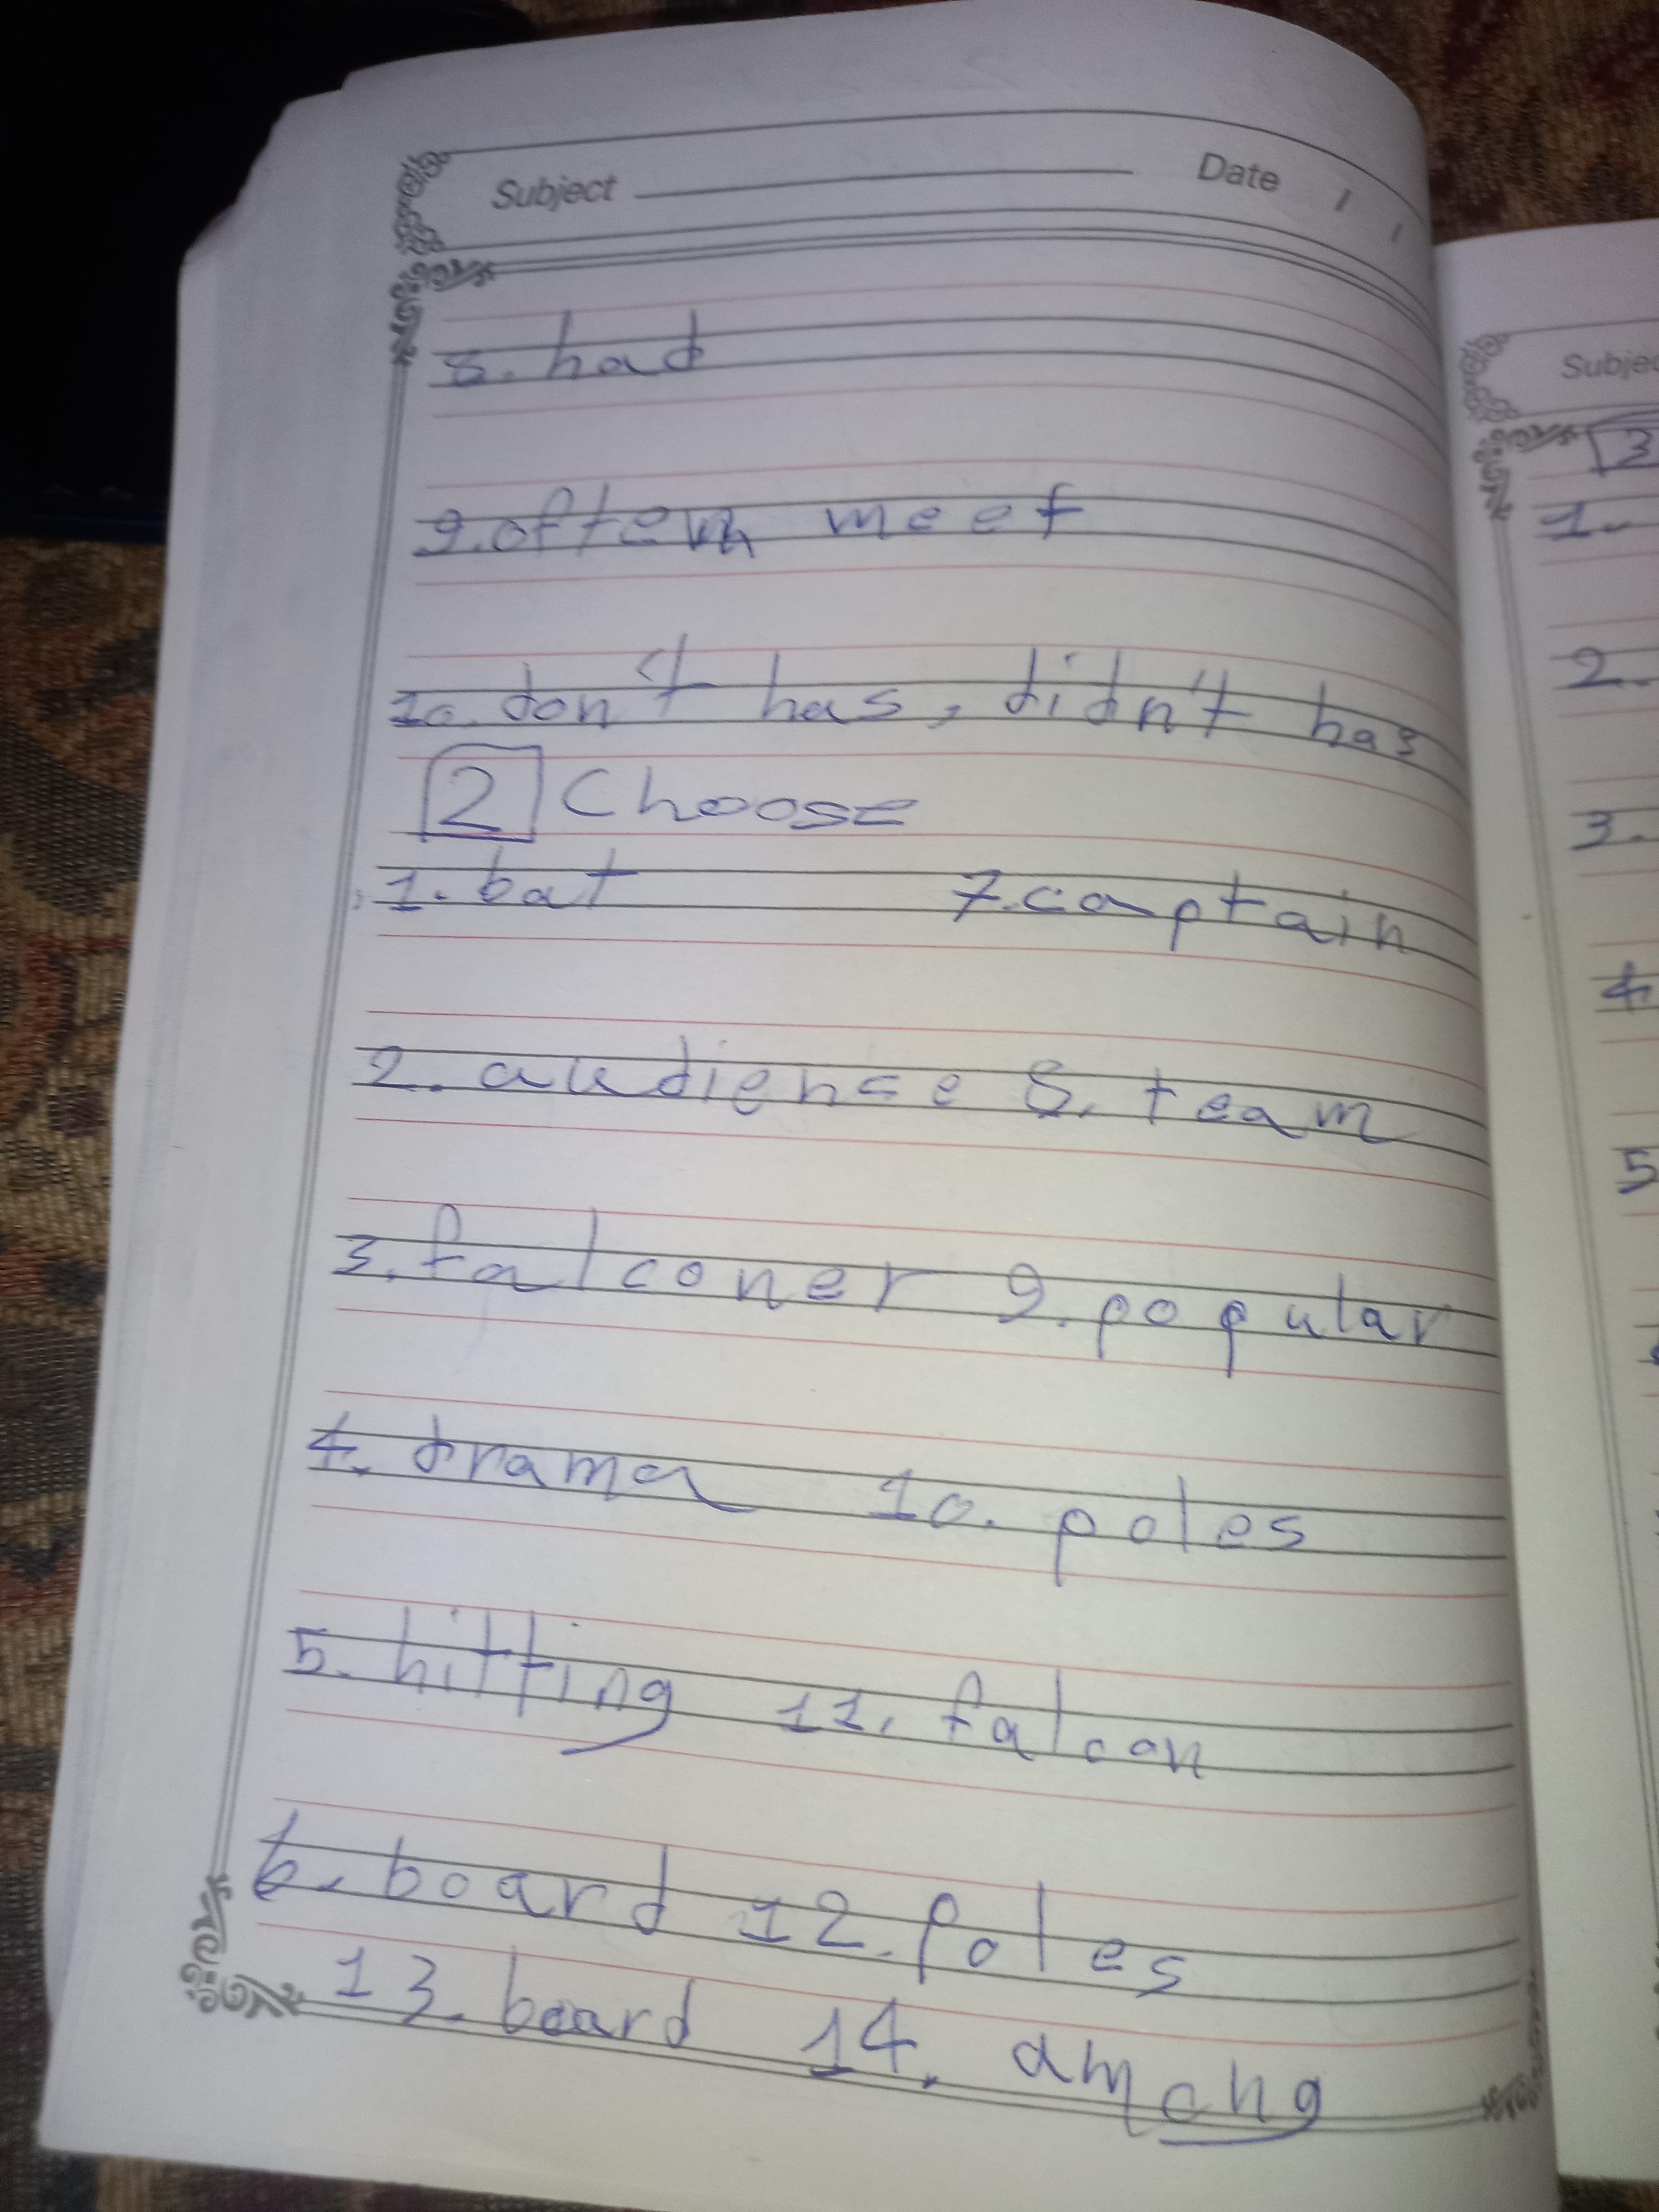 Subject Date / /
8. had
9. often meet
10. don't has, didn't has
2 Choose
1. bat 7. captain
2. audiense 8. team
3. falconer 9. popular
4. drama 10. poles
5. hitting 11. falcon
6. board 12. Poles
13. board 14. among
Subjec
3
1.
2.
3.
4
5